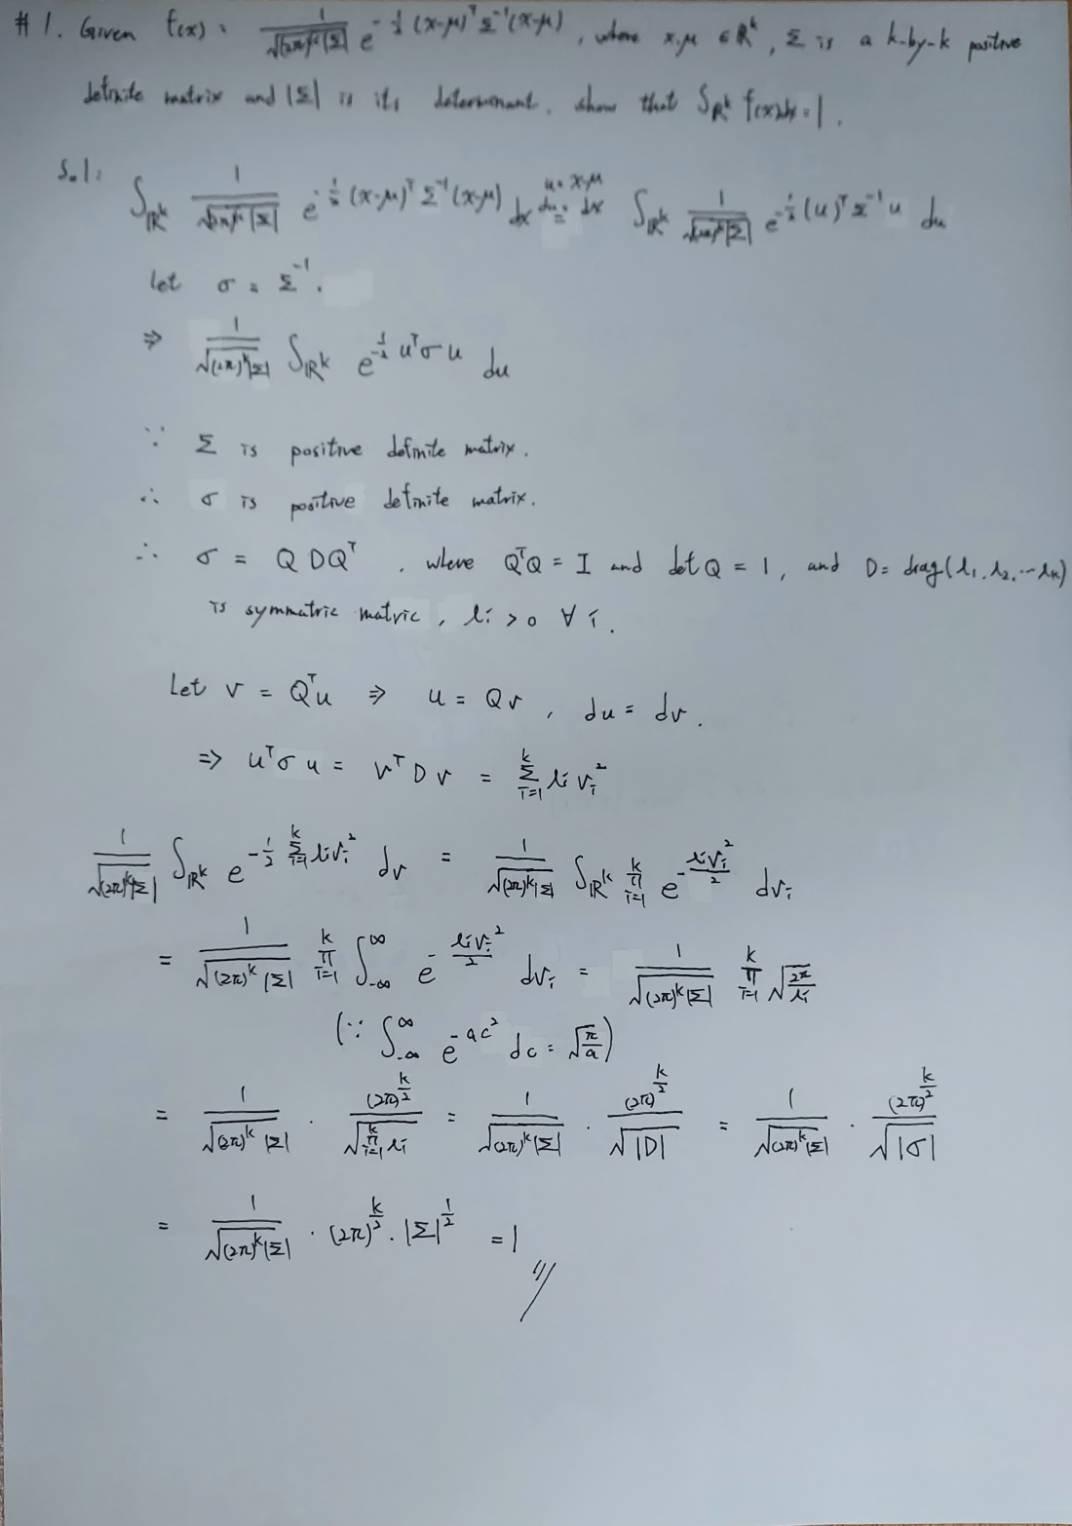 #1. Given f(x) = 1/√((2π)^k|Σ|) e^{-1/2 (x-μ)^T Σ^{-1}(x-μ)}, where x, μ ∈ ℝ^k, Σ is a k-by-k positive
definite matrix and |Σ| is its determinant, show that ∫_{ℝ^k} f(x)dx = 1.
Sol:
∫_{ℝ^k} 1/√((2π)^k|Σ|) e^{-1/2 (x-μ)^T Σ^{-1}(x-μ)} dx =(u = x-μ, du = dx) ∫_{ℝ^k} 1/√((2π)^k|Σ|) e^{-1/2 (u)^T Σ^{-1} u} du
let σ = Σ^{-1}.
⇒ 1/√((2π)^k|Σ|) ∫_{ℝ^k} e^{-1/2 u^T σ u} du
∵ Σ is positive definite matrix.
∴ σ is positive definite matrix.
∴ σ = QDQ^T, where Q^TQ = I and det Q = 1, and D = diag(l_1, l_2, ... l_k)
is symmatric matric, l_i > 0 ∀ i.
Let v = Q^T u ⇒ u = Qv, du = dv.
⇒ u^T σ u = v^T D v = Σ_{i=1}^k l_i v_i^2
1/√((2π)^k|Σ|) ∫_{ℝ^k} e^{-1/2 Σ_{i=1}^k l_i v_i^2} dv = 1/√((2π)^k|Σ|) ∫_{ℝ^k} Π_{i=1}^k e^{-l_i v_i^2/2} dv_i
= 1/√((2π)^k|Σ|) Π_{i=1}^k ∫_{-∞}^{∞} e^{-l_i v_i^2/2} dv_i = 1/√((2π)^k|Σ|) Π_{i=1}^k √(2π/l_i)
(∵ ∫_{-∞}^{∞} e^{-ac^2} dc = √(π/a))
= 1/√((2π)^k|Σ|) · (2π)^{k/2}/√(Π_{i=1}^k l_i) = 1/√((2π)^k|Σ|) · (2π)^{k/2}/√|D| = 1/√((2π)^k|Σ|) · (2π)^{k/2}/√|σ|
= 1/√((2π)^k|Σ|) · (2π)^{k/2} · |Σ|^{1/2} = 1